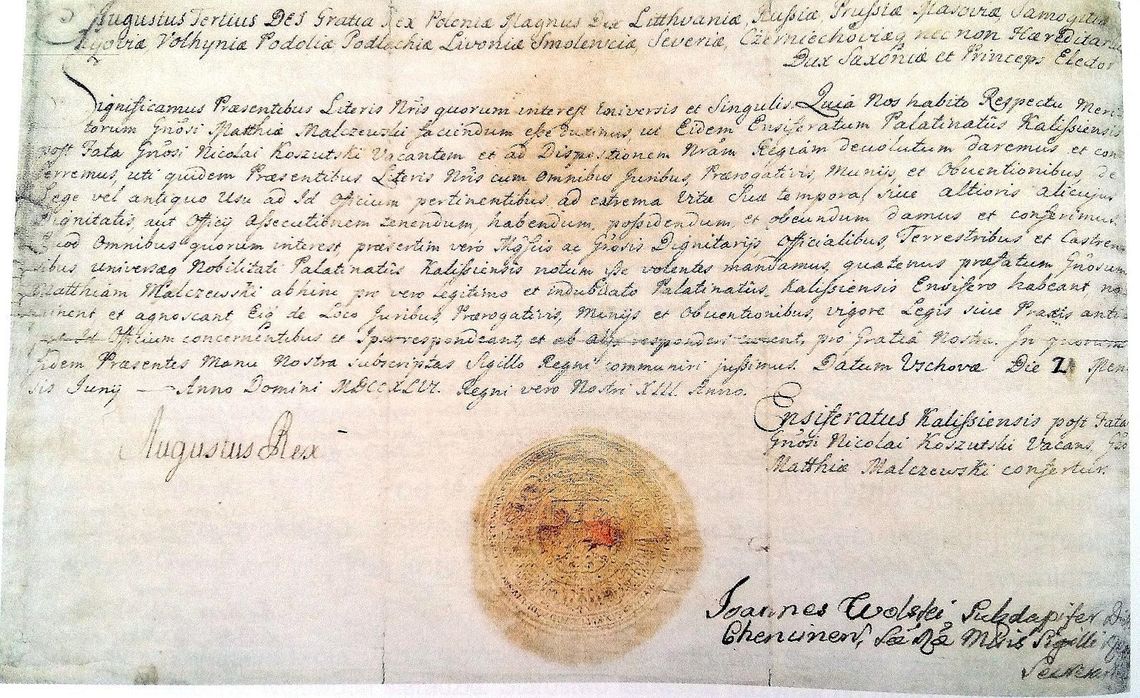 Augustus Tertius DEI Gratia Rex Poloniæ Magnus Dux Litthvaniæ, Russiæ Prussiæ Masoviæ, Samogitiæ
Kyoviæ Volhyniæ Podoliæ Podlachiæ Livoniæ Smolenciæ, Severiæ, Czerniechoviæq nec non Hæreditarius
Dux Saxoniæ et Princeps Elector
Significamus Præsentibus Literis Nrĩs quorum interest Universis et Singulis. Quia Nos habito Respectu Meri
torum Gnõsi Matthiæ Malczewski faciendum esse duximus ut Eidem Ensiferatum Palatinatûs Kalissiensis
post Fata Gnõsi Nicolai Koszutski Vacantem et ad Dispositionem Nrãm Regiam devolutum daremus et con
ferremus, uti quidem Præsentibus Literis Nrĩs cum Omnibus Juribus, Prærogativis, Munijs, et Obventionibus, de
Lege vel antiquo Usu ad Id Officium pertinentibus, ad extrema Vitæ Suæ tempora, sive altioris alicujus
Dignitatis, aut Officij Assecutionem tenendum, habendum, possidendum, et obeundum damus et conferimus.
Quod Omnibus quorum interest præsertim vero Mgfcis ac Gnõsis Dignitarijs, Officialibus, Terrestribus et Castren
sibus universæq Nobilitati Palatinatûs Kalissiensis notum esse volentes mandamus, quatenus præfatum Gnõsum
Matthiam Malczewski abhinc pro vero legitimo et indubitato Palatinatûs Kalissiensis Ensifero habeant, no
minent et agnoscant Eiq de Loco Juribus, Prærogativis, Munijs et Obventionibus, vigore Legis sive Praxis anti
Officium concernentibus et Ipsi respondeant, et ab alijs responderi curent, pro Gratia Nostra. In quorum
fidem Præsentes Manu Nostra subscriptas Sigillo Regni communiri jussimus. Datum Vschovæ Die Men
sis Junij Anno Domini MDCCXLVI. Regni vero Nostri XIII Anno.
Augustus Rex
Ensiferatus Kalissiensis post Fata
Gnõsi Nicolai Koszutski Vacans, Gsõ
Matthiæ Malczewski confertur.
Joannes Wolski Subdapifer
Chencinen, Sigilli